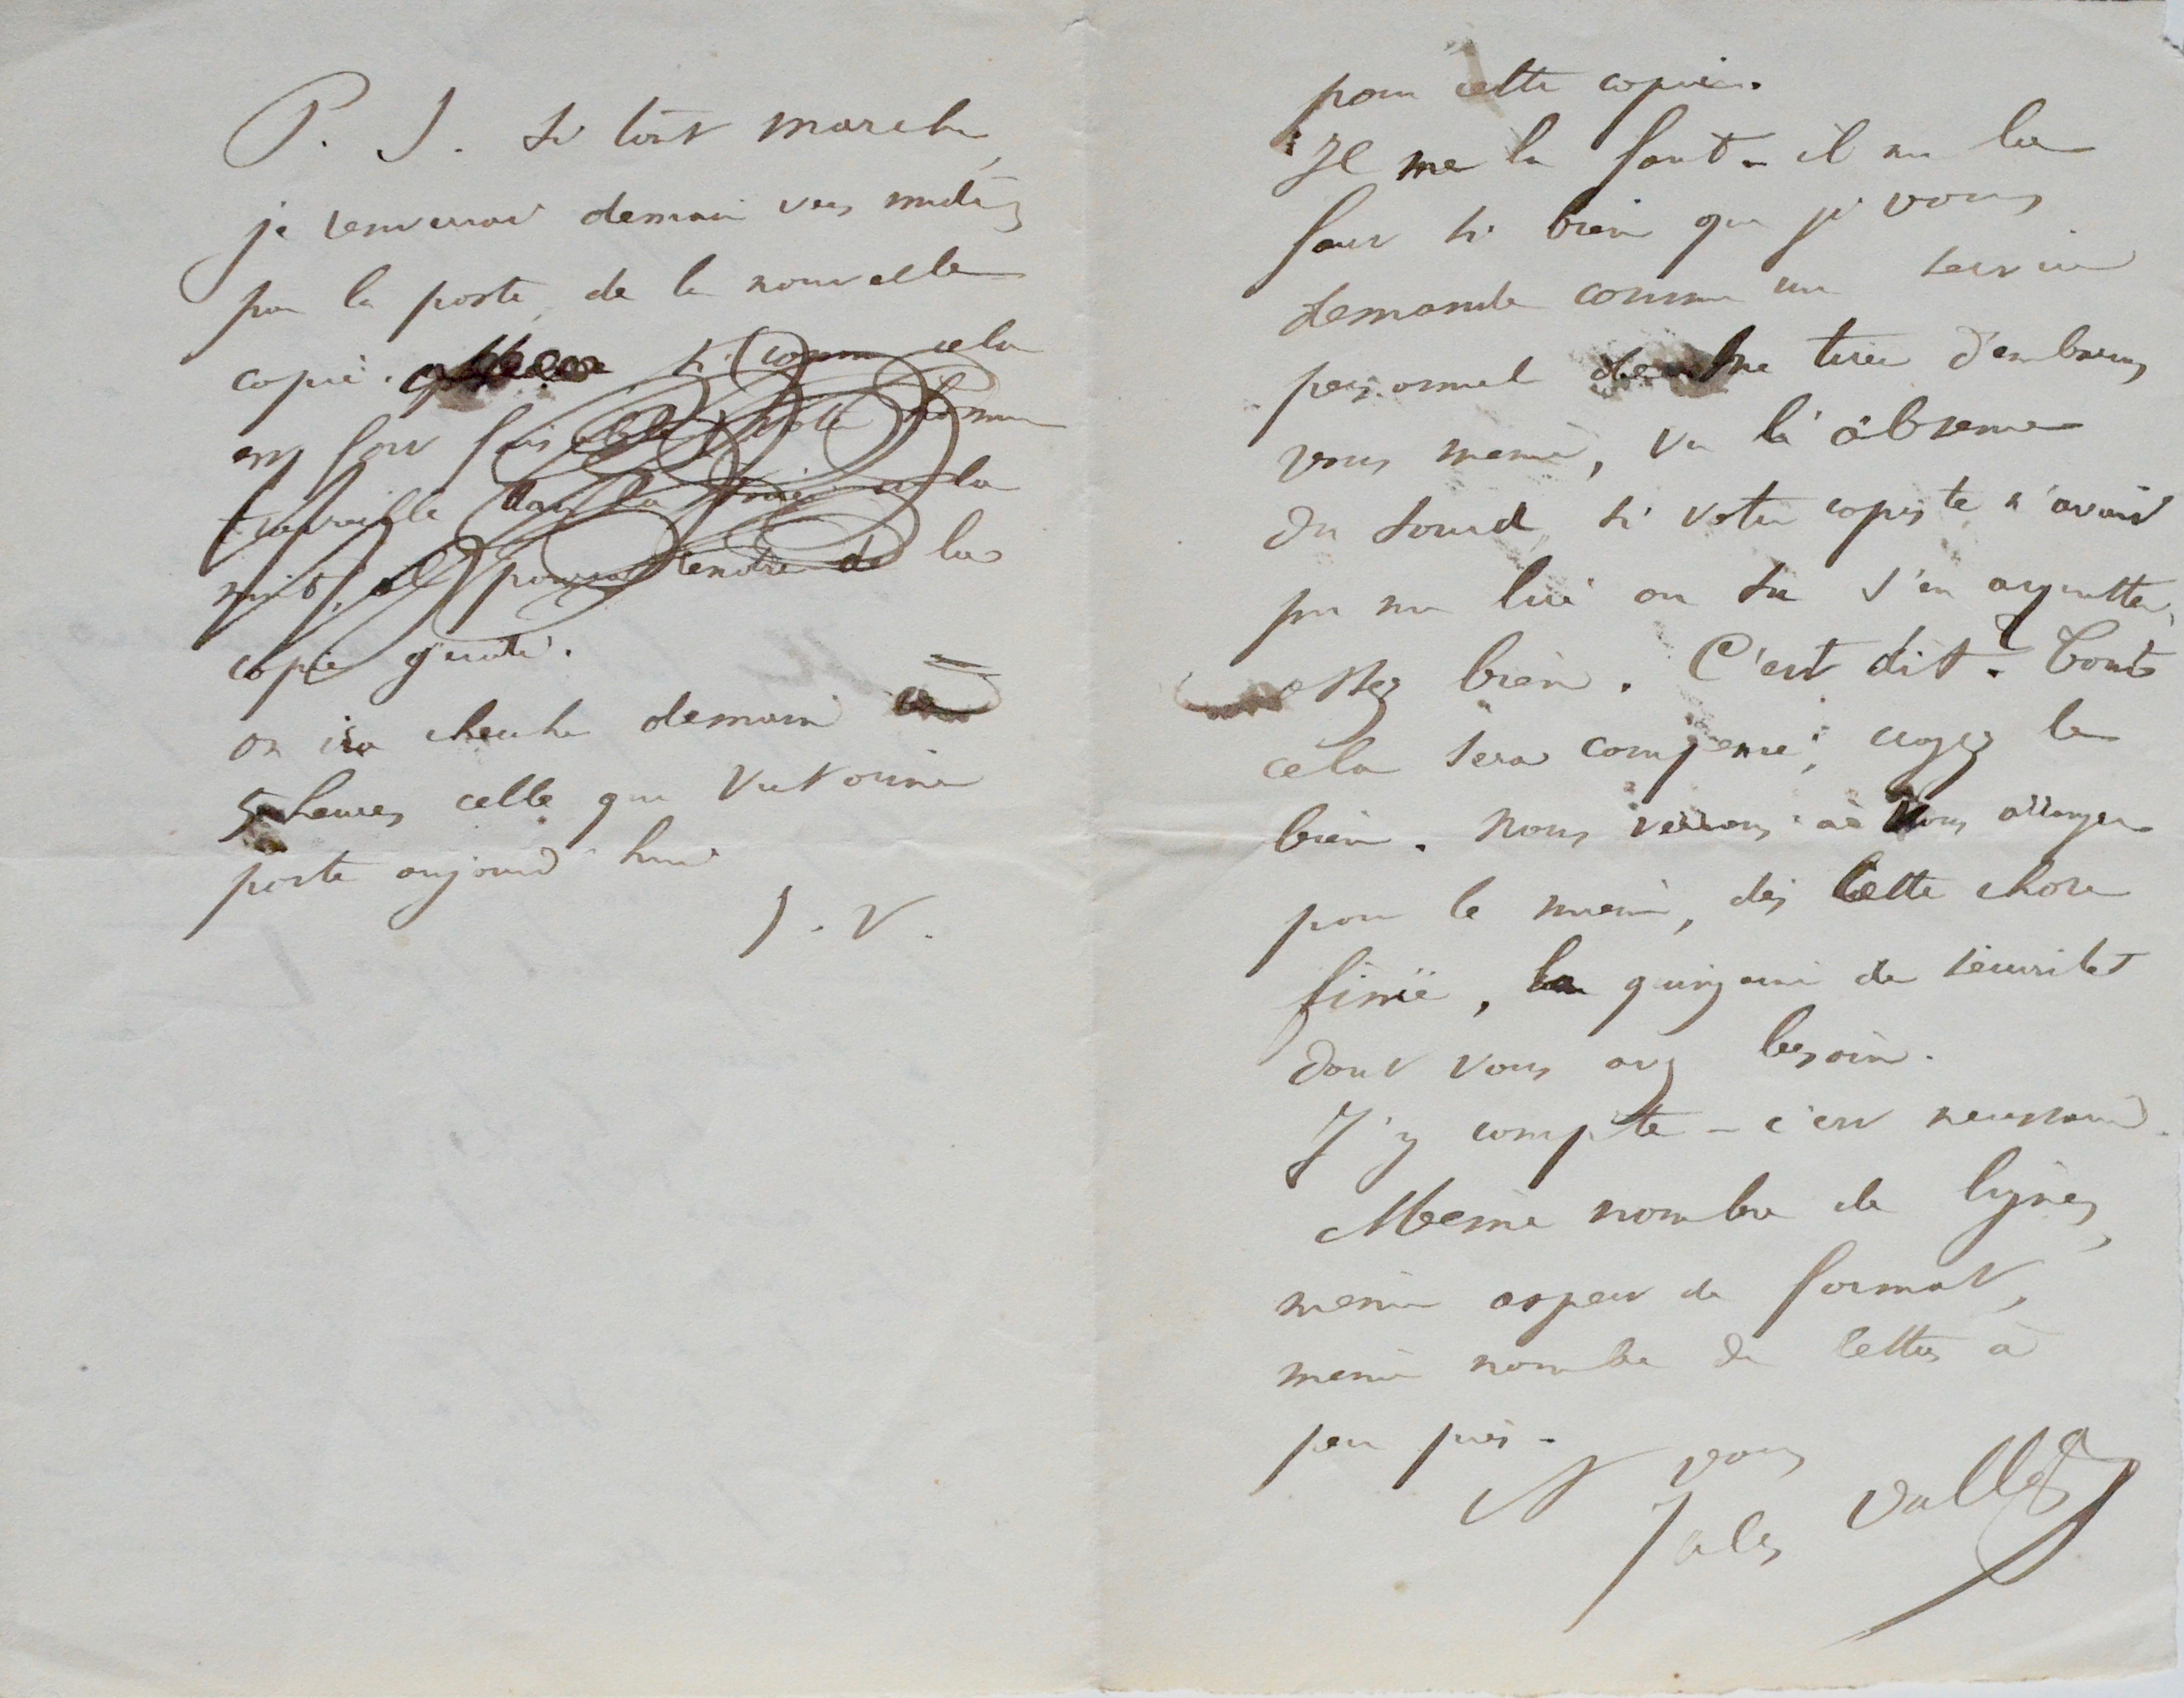 P. S. Si tout marche,
je renverrai demain vers midi
par la poste, de la nouvelle
copie. si comme cela
en fait
travaille dans la cela
nuit, il pourra rendre de la
copie
on ira cherche demain à
5 heures celle que Victorine
porte aujourd'hui
J. V.
pour cette copie.
Il me la faut – il me la
faut si bien que je vous
demande comme un service
personnel de me tirer d'embarras
vous même, vu l'absence
du sourd, si votre copiste n'avait
pu ou su s'en acquitter
assez bien. C'est dit. Tout
cela sera compensé, croyez le
bien. Nous verrons à vous arranger
pour le mieux, dès cette chose
finie, la de sécurité
dont vous avez besoin.
J'y compte – c'est nécessaire.
Même nombre de lignes,
même aspect de format,
même nombre de lettres à
peu près –
A vous
Jules Vallès